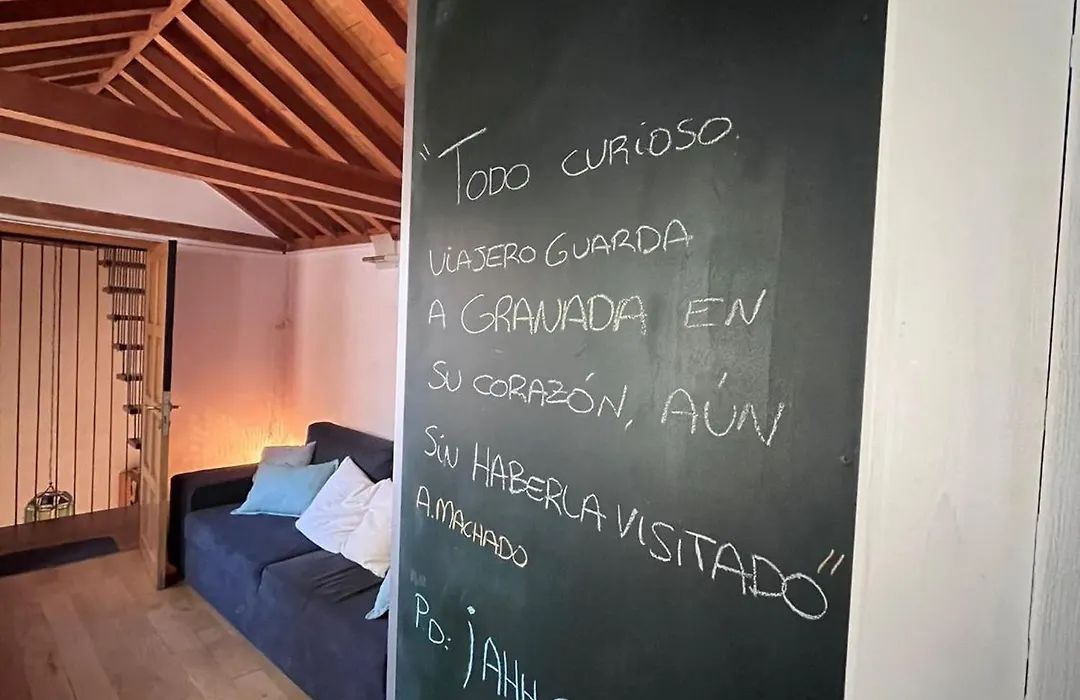 "TODO CURIOSO.
VIAJERO GUARDA
A GRANADA EN
SU CORAZÓN, AÚN
SIN HABERLA VISITADO"
A.MACHADO
PD: